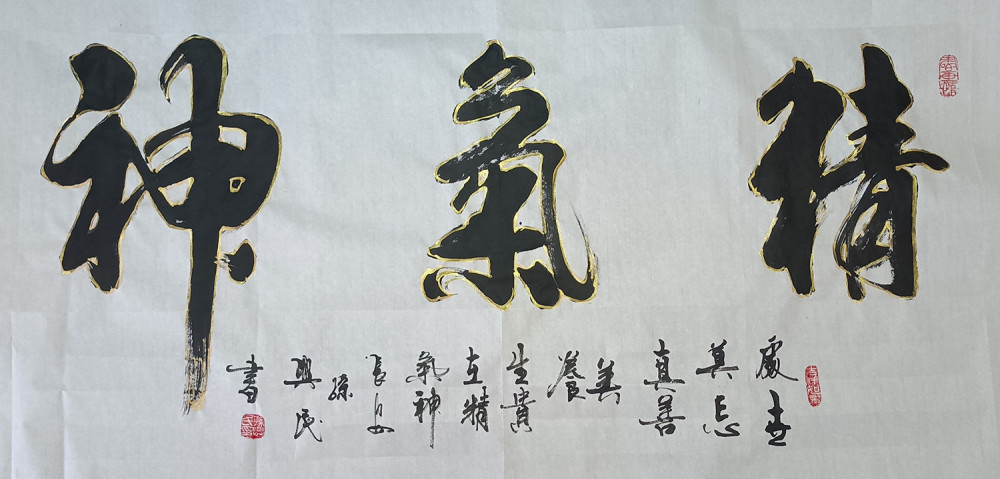 精氣神
處世
莫忘
真善
美
養
生貴
在精
氣神
長安
孫
興民
書